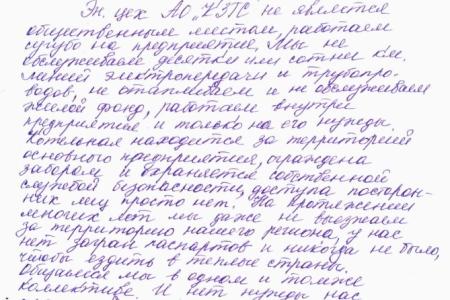 Эн. цех АО "КЭПС" не является
общественным местом, работаем
сугубо на предприятие, Мы не
обслуживаем десятки или сотни км.
линий электропередачи и трубопро-
водов, не отапливаем и не обслуживаем
жилой фонд, работаем внутри
предприятия и только на его нужды.
Котельная находится за территорией
основного предприятия, ограждена
забором и охраняется собственной
службой безопасности, доступа посторон-
них лиц просто нет. На протяжении
многих лет мы даже не выезжаем
за территорию нашего региона, у нас
нет загран паспортов и никогда не было,
чтобы ездить в теплые страны.
Общаемся мы в одном и томже
коллективе. И нет нужды нас